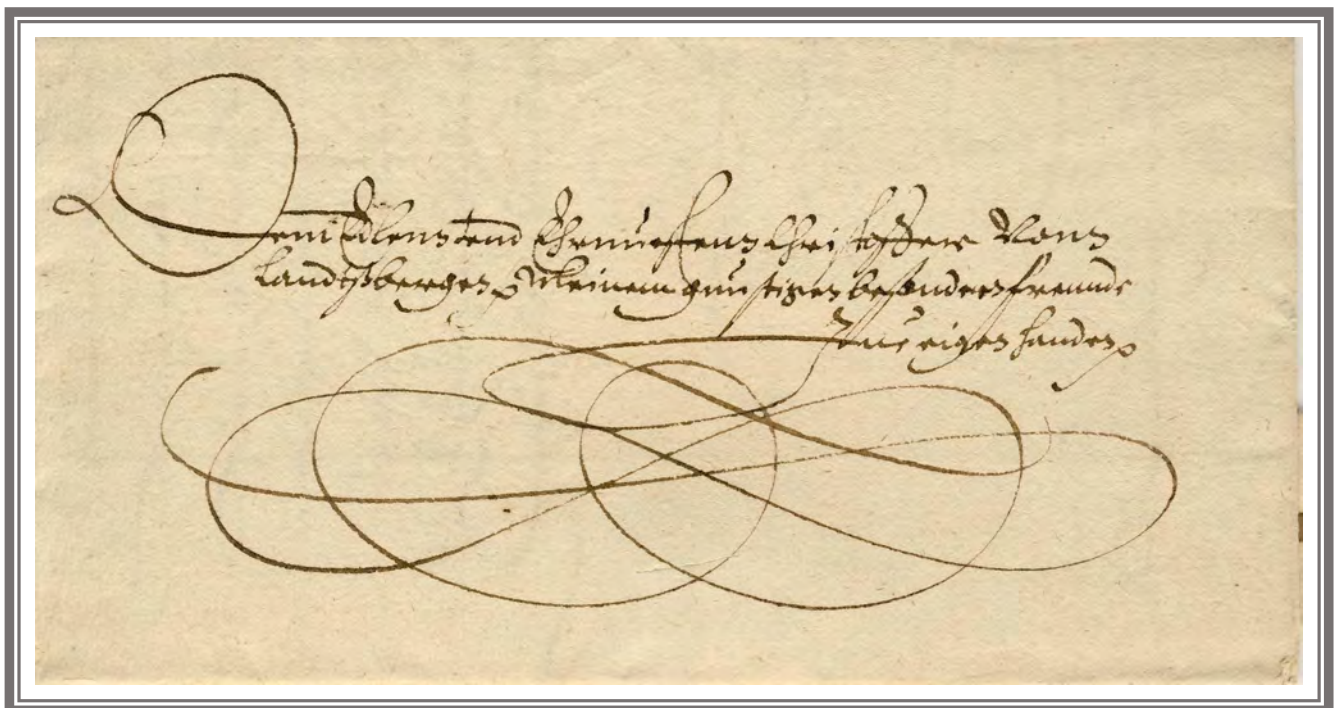 Dem Edlenn vnnd Ehrnuesstenn Christoffer Vonn
Landtßbergen Meinem gunstigen besondern freunde
Zue eigen handen